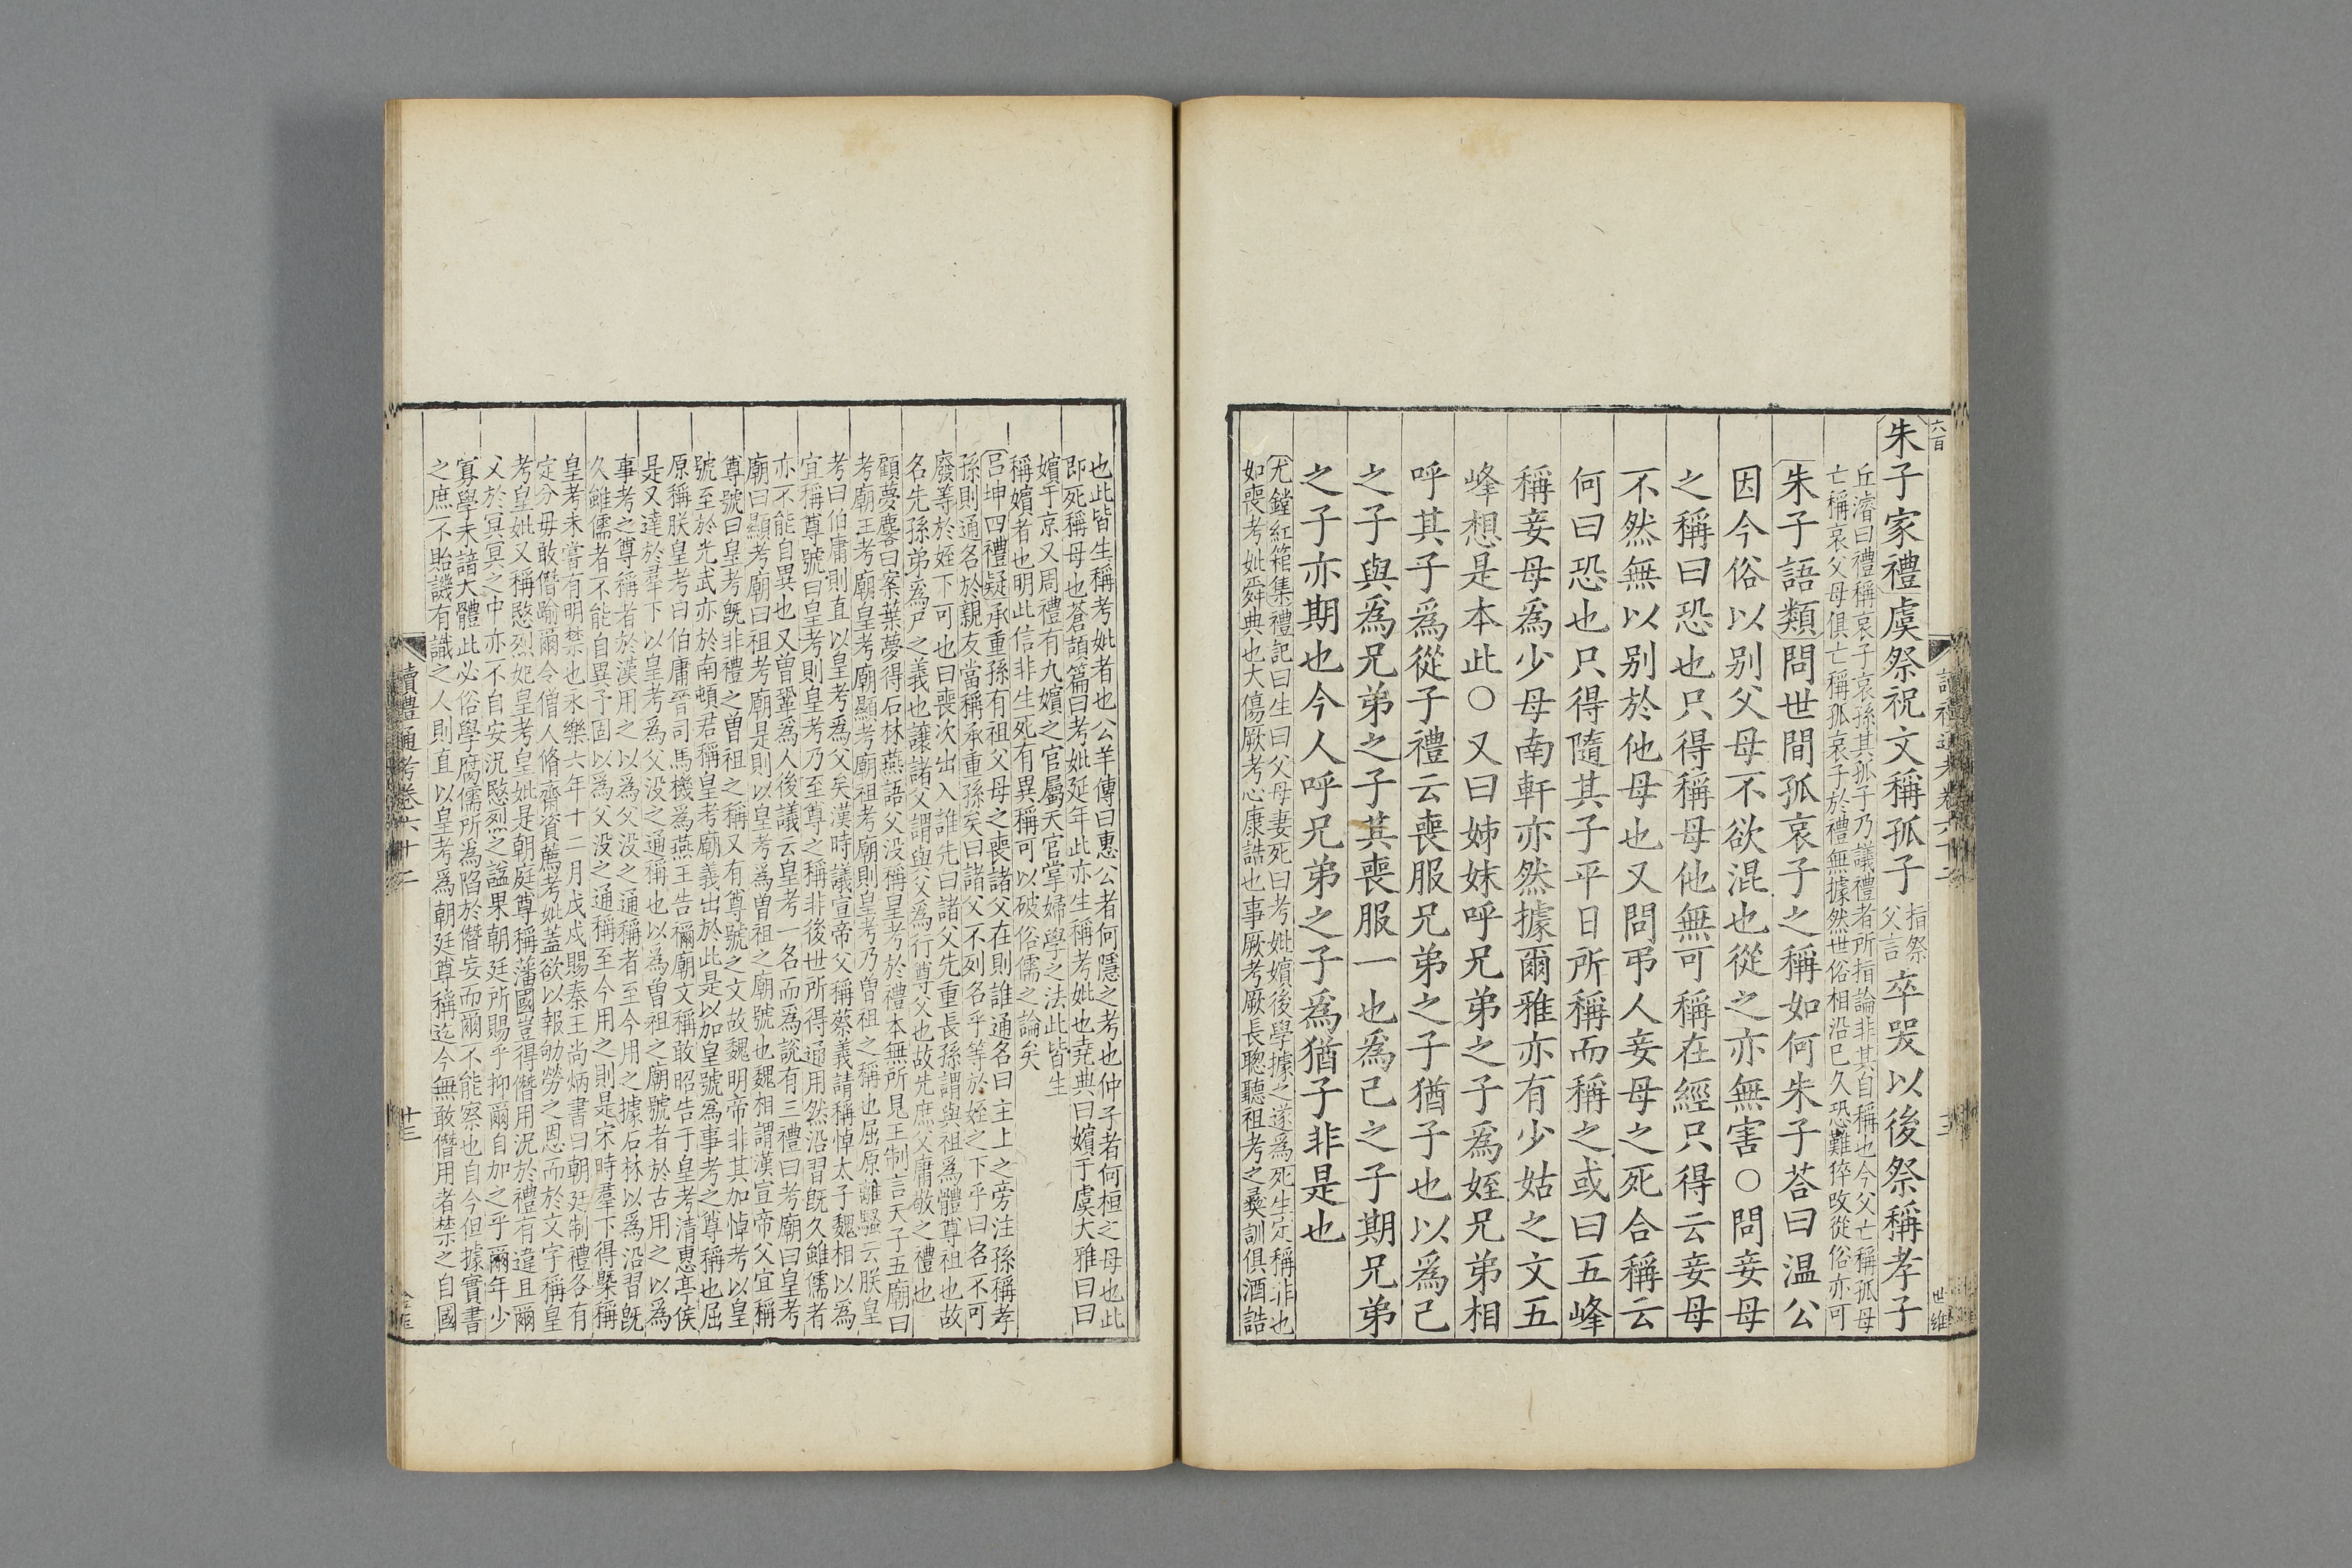 六百
朱子家禮虞祭祝文稱孤子
指祭
父言
卒哭以後祭稱孝子
丘濬曰禮稱哀子哀孫其孤子乃議禮者所指論非其自稱也今父亡稱孤母
亡稱哀父母俱亡稱孤哀子於禮無據然世俗相沿已久恐難倅改從俗亦可
朱子語類問世間孤哀子之稱如何朱子荅曰温公
因今俗以别父母不欲混也從之亦無害○問妾母
之稱曰恐也只得稱母他無可稱在經只得云妾母
不然無以别於他母也又問弔人妾母之死合稱云
何曰恐也只得隨其子平日所稱而稱之或曰五峰
稱妾母爲少母南軒亦然據爾雅亦有少姑之文五
峰想是本此○又曰姊妹呼兄弟之子爲姪兄弟相
呼其子爲從子禮云喪服兄弟之子猶子也以爲己
之子與爲兄弟之子其喪服一也爲己之子期兄弟
之子亦期也今人呼兄弟之子爲猶子非是也
尤鏜紅箱集禮記曰生曰父母妻死曰考妣嬪後學據之遂爲死生定稱非也
如喪考妣舜典也大傷厥考心康誥也事厥考厥長聰聽祖考之彛訓俱酒誥
世維
也此皆生稱考妣者也公羊傳曰惠公者何隱之考也仲子者何桓之母也此
即死稱母也蒼頡篇曰考妣延年此亦生稱考妣也堯典曰嬪于虞大雅曰曰
嬪于京又周禮有九嬪之官屬天官掌婦學之法此皆生
稱嬪者也明此信非生死有異稱可以破俗儒之論矣
呂坤四禮疑承重孫有祖父母之喪諸父在則誰通名曰主上之旁注孫稱孝
孫則通名於親友當稱承重孫矣曰諸父不列名乎等於姪之下乎曰名不可
廢等於姪下可也曰喪次出入誰先曰諸父先重長孫謂與祖爲體尊祖也故
名先孫弟爲尸之義也讓諸父謂與父爲行尊父也故先庶父庸敬之禮也
顧夢麐曰案葉夢得石林燕語父没稱皇考於禮本無所見王制言天子五廟曰
考廟王考廟皇考廟顯考廟祖考廟則皇考乃曾祖之稱也屈原離騷云朕皇
考曰伯庸則直以皇考爲父矣漢時議宣帝父稱蔡義請稱悼太子魏相以爲
宜稱尊號曰皇考則皇考乃至尊之稱非後世所得通用然沿習旣久雖儒者
亦不能自異也又曾鞏爲人後議云皇考一名而爲說有三禮曰考廟曰皇考
廟曰顯考廟曰祖考廟是則以皇考爲曾祖之廟號也魏相謂漢宣帝父宜稱
尊號曰皇考旣非禮之曾祖之稱又有尊號之文故魏明帝非其加悼考以皇
號至於光武亦於南頓君稱皇考廟義出於此是以加皇號爲事考之尊稱也屈
原稱朕皇考曰伯庸晉司馬機爲燕王告禰廟文稱敢昭告于皇考清惠亭侯
是又達於羣下以皇考爲父没之通稱也以爲曾祖之廟號者於古用之以爲
事考之尊稱者於漢用之以爲父没之通稱者至今用之據石林以爲沿習旣
久雖儒者不能自異予固以爲父没之通稱至今用之則是宋時羣下得槩稱
皇考未嘗有明禁也永樂六年十二月戊戌賜秦王尚炳書曰朝廷制禮各有
定分毋敢僭踰爾令僧人脩齋資薦考妣蓋欲以報劬勞之恩而於文字稱皇
考皇妣又稱愍烈妃皇考皇妣是朝庭尊稱藩國豈得僭用况於禮有違且爾
父於冥冥之中亦不自安況愍烈之諡果朝廷所賜乎抑爾自加之乎爾年少
寡學未諳大體此必俗學腐儒所爲陷於僭妄而爾不能察也自今但據實書
之庶不貽譏有識之人則直以皇考爲朝廷尊稱迄今無敢僭用者禁之自國
讀禮通考卷六十二
十三